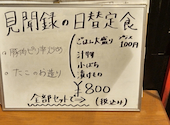 見聞録の日替定食
豚肉ピリ辛炒め
たこのお造り
ごはん大盛り プラス100円
汁物
小ばち
漬けもの
¥800
全部セットで (税込み)